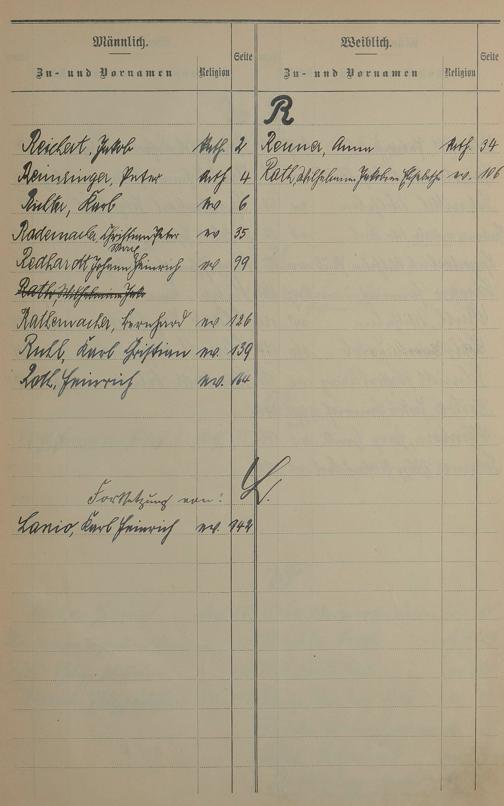 Männlich.
Zu- und Vornamen Religion Seite
Weiblich.
Zu- und Vornamen Religion Seite
R
Reichert, Jakob kath. 2
Renner, Anna kath. 34
Renninger, Peter kath 4
Rath, Wilhelmine Jakobine Elisabethe ev. 106
Richter, Karl ev 6
Rademacher, Christian Peter ev 35
Redhardt Johann Heinrich ev 99
Rath, Wilhelmine Jak
Rathemacher, Bernhard ev 126
Ruhl, Karl Christian ev. 139
Roth, Heinrich ev. 164
Fortsetzung von: L.
Lanio, Karl Heinrich ev. 142